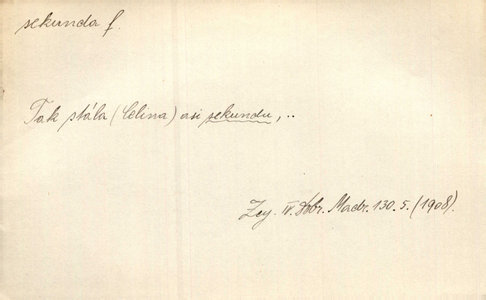 sekunda f.
Tak stála (Celina) asi sekundu, ..
Zey. IV. Dobr. Madr. 130. 5. (1908).